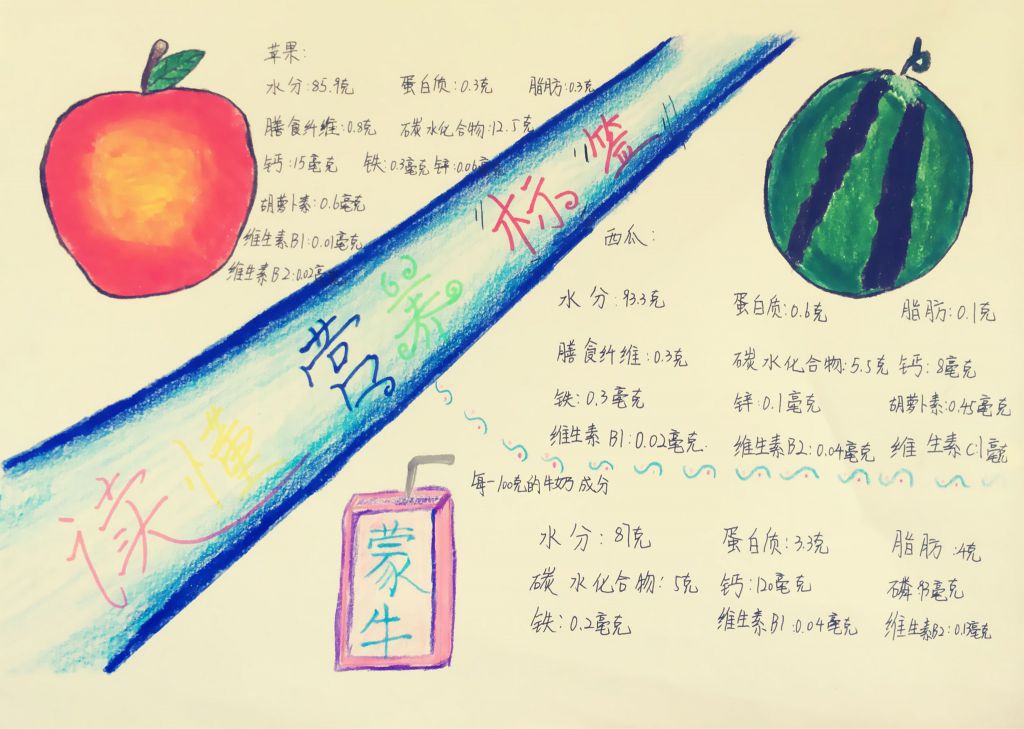 苹果:
水分:85.9克 蛋白质:0.3克 脂肪:0.3克
膳食纤维:0.8克 碳水化合物:12.5克
钙:15毫克 铁:0.3毫克 锌:0.06毫
胡萝卜素:0.6毫克
维生素B1:0.01毫克
维生素B2:0.02毫
读懂营养"标签"
西瓜:
水分:93.3克 蛋白质:0.6克 脂肪:0.1克
膳食纤维:0.3克 碳水化合物:5.5克 钙:8毫克
铁:0.3毫克 锌:0.1毫克 胡萝卜素:0.45毫克
维生素B1:0.02毫克. 维生素B2:0.04毫克 维生素C:1毫克
每一100克的牛奶成分
水分:87克 蛋白质:3.3克 脂肪:4克
碳水化合物:5克 钙:120毫克 磷:93毫克
铁:0.2毫克 维生素B1:0.04毫克 维生素B2:0.13毫克
蒙牛